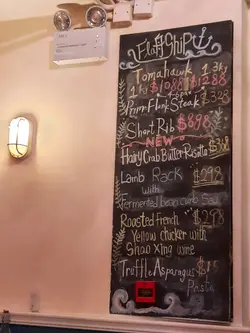 FlagShip
Tomahawk 1.3kg
1kg $1088 $1288
Prim Flank Steak $328
Short Rib $898
NEW
Hairy Crab Butter Risotto $368
Lamb Rack $298
with
Fermented bean curd Sauce
Roasted french $298
Yellow chicken with
Shao Xing wine
Truffle Asparagus
Pasta